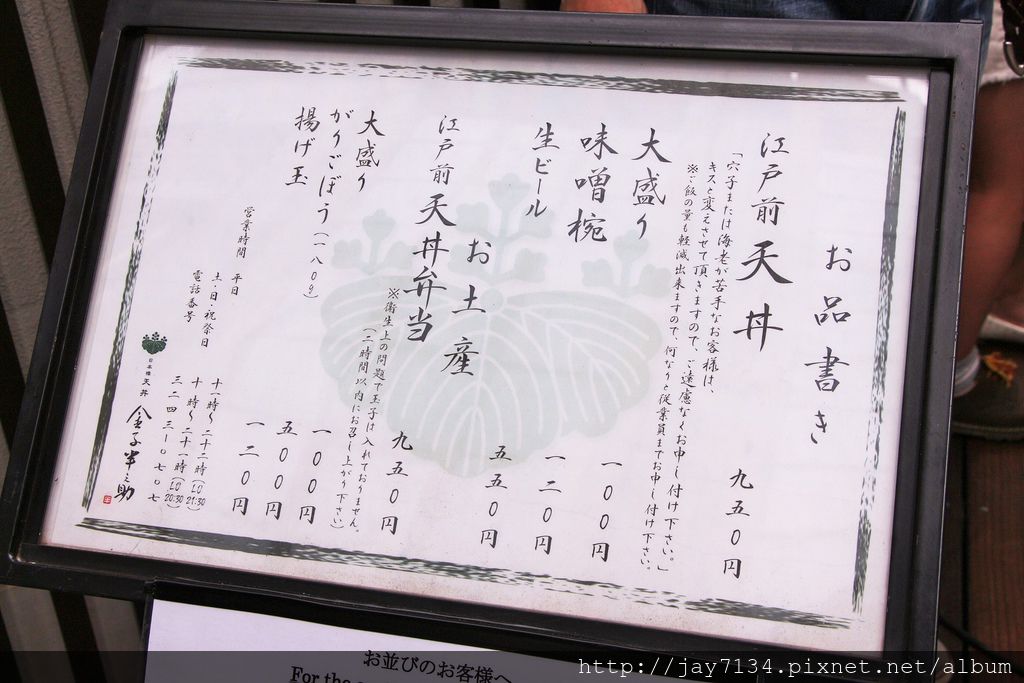 お品書き
江戸前 天丼 九五0円
「穴子または海老が苦手なお客様は、
キスと変えさせて頂きますので、ご遠慮なくお申し付け下さい。」
※ご飯の量も軽減出来ますので、何なりと従業員までお申し付け下さい。
大盛り 一00円
味噌椀 一二0円
生ビール 五五0円
お土産
江戸前 天丼弁当 九五0円
※衛生上の問題で玉子は入れておりません。
(二時間以内にお召し上がり下さい)
大盛り 一00円
がりごぼう(一八0g) 五00円
揚げ玉 一二0円
営業時間 平日 十一時～二十二時(LO 21:30)
土・日・祝祭日 十時～二十一時(LO 20:30)
電話番号 三二四三ー0七0七
日本橋 天丼 金子半之助
お並びのお客様へ
For the
http://jay7134.pixnet.net/album